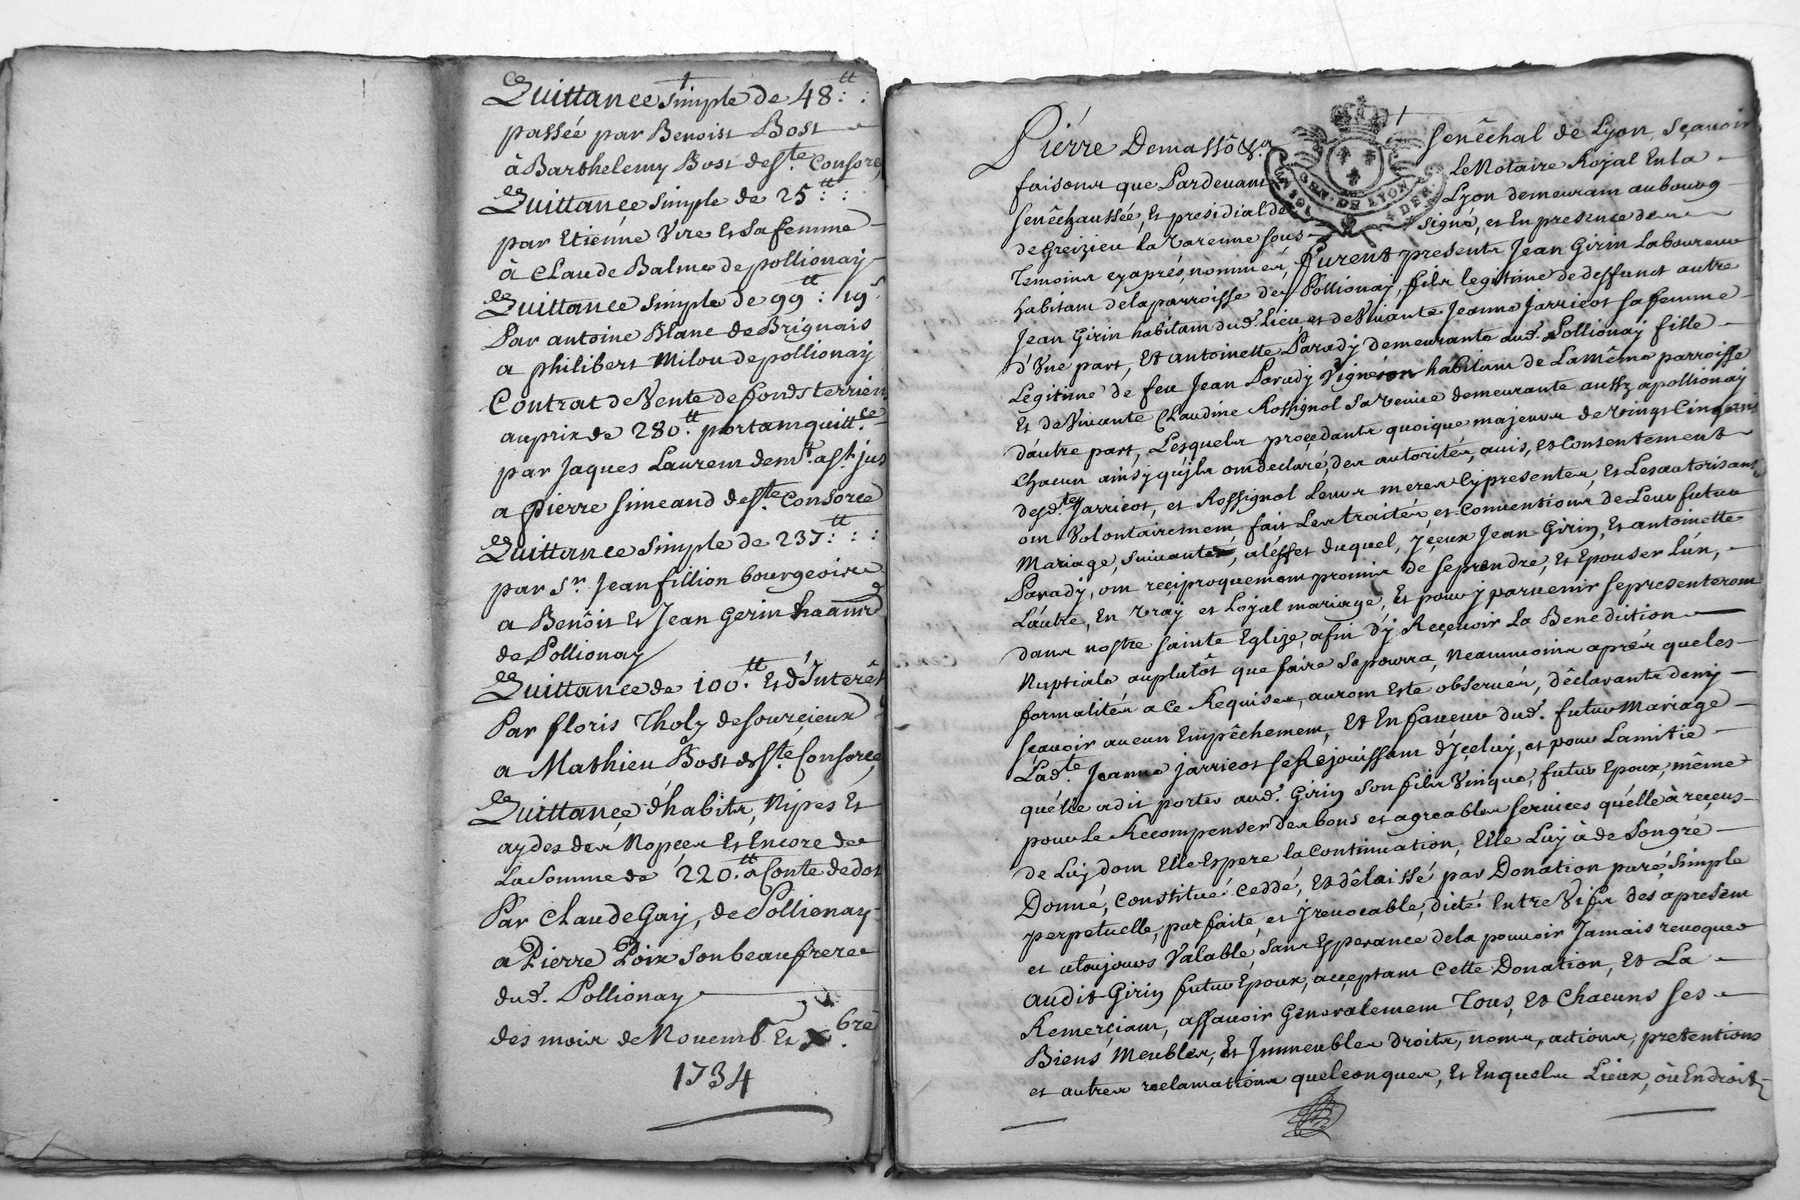 Quittance simple de 48ᵗᵗ
passée par Benoist Bost
à Barthelemy Bost de Sᵗᵉ Consorce
Quittance simple de 25ᵗᵗ
par Etienne Vire et sa femme
à Claude Balme de pollionay
Quittance simple de 99ᵗᵗ: 19ˢ
Par antoine Blanc de Brignais
a philibert Milou de pollionay
Contrat de Vente de fonds terrien
au prix de 280ᵗᵗ portant quittᶜᵉ
par Jaques Laurent demᵗ a Sᵗ jus
a pierre Simeand de Sᵗᵉ Consorce
Quittance simple de 237ᵗᵗ
par Sʳ. Jean fillion bourgeois
a Benôit et Jean Gerin
de Pollionay
Quittance de 100ᵗᵗ Et d'Interêt
Par floris Tholy de Sourcieux
a Mathieu Bost de Sᵗᵉ Consorce
Quittance d'habits, Nipes Et
aydes des Nopces Et Encore de
La Somme de 220ᵗᵗ a Conte de dot
Par Claude Gay, de Pollionay
a Pierre Poix son beaufrere
dud. Pollionay
des mois de Novemb. Et Xᵇʳᵉ
1734
Pierre Demassô &.ᵃ Senêchal de Lyon, sçavoir
faisons que Pardevant Le Notaire Royal En la
Senêchaussée, Et presidial de Lyon demeurant au bourg
de Greizieu la varenne sous signé, et En presence de
Temoins cy aprés nommés, furent presents Jean Girin Laboureur
habitant de la parroisse de Pollionay, fils legitime de deffunct autre
Jean Girin habitant dud. Lieu et de Vivante Jeanne Jarricot sa femme
d'Vne part, Et antoinette Parady demeurante aud. Pollionay fille
Légitime de feu Jean Parady Vigneron habitant de La Même parroisse
Et de Vivante Claudine Rossignol sa Veuve demeurante aussy a pollionay
d'autre part, Lesquels procedants quoique majeurs de vingt Cinq ans
Chacun ainsy qu'jls ont declaré, des autorités, avis, et Consentement
desd.ᵗᵉˢ Jarricot, et Rossignol Leurs meres Cy presentes, et Les autorisant
ont Volontairement fait Les traités, et Conventions de Leur futur
Mariage, Suivantes, a l'effet duquel, jceux Jean Girin, Et antoinette
Parady, ont reciproquement promis de se prendre, Et Epouser L'un,
L'autre, En vray et Loyal mariage, Et pour y parvenir se presenteront
dans nostre sainte Eglize, afin d'y Recevoir La Benediction
Nuptiale auplutôt que faire se pourra, Neanmoins aprés que les
formalités a ce Requises, auront Esté observés, dêclarants de ny
sçavoir aucun Empêchement, Et En faveur dud. futur Mariage
Lad.ᵗᵉ Jeanne Jarricot se Rejouissant d'Jceluy, et pour Lamitié
qu'elle a dit porter aud. Girin son fils Vnique, futur Epoux, même
pour le Recompenser des bons et agreables services qu'elle à reçus
de Luy dont Elle Espere la Continuation, Elle Luy à de Son gré
Donné, Constitué Ceddé, Et dêlaissé par Donation pure, Simple
perpetuelle, parfaite, et jrrevocable, dicte Entre Vifs des apresent
et atoujours Valable, sans Esperance de la pouvoir Jamais revoquer
audit Girin futur Epoux, acceptant Cette Donation, Et La
Remerciant, assavoir Generalement Tous, Et Chacuns ses
Biens Meubles, Et Jmmeubles droits, noms, actions, pretentions
et autres reclamations quelconques, Et En quels Lieux, ou Endroits